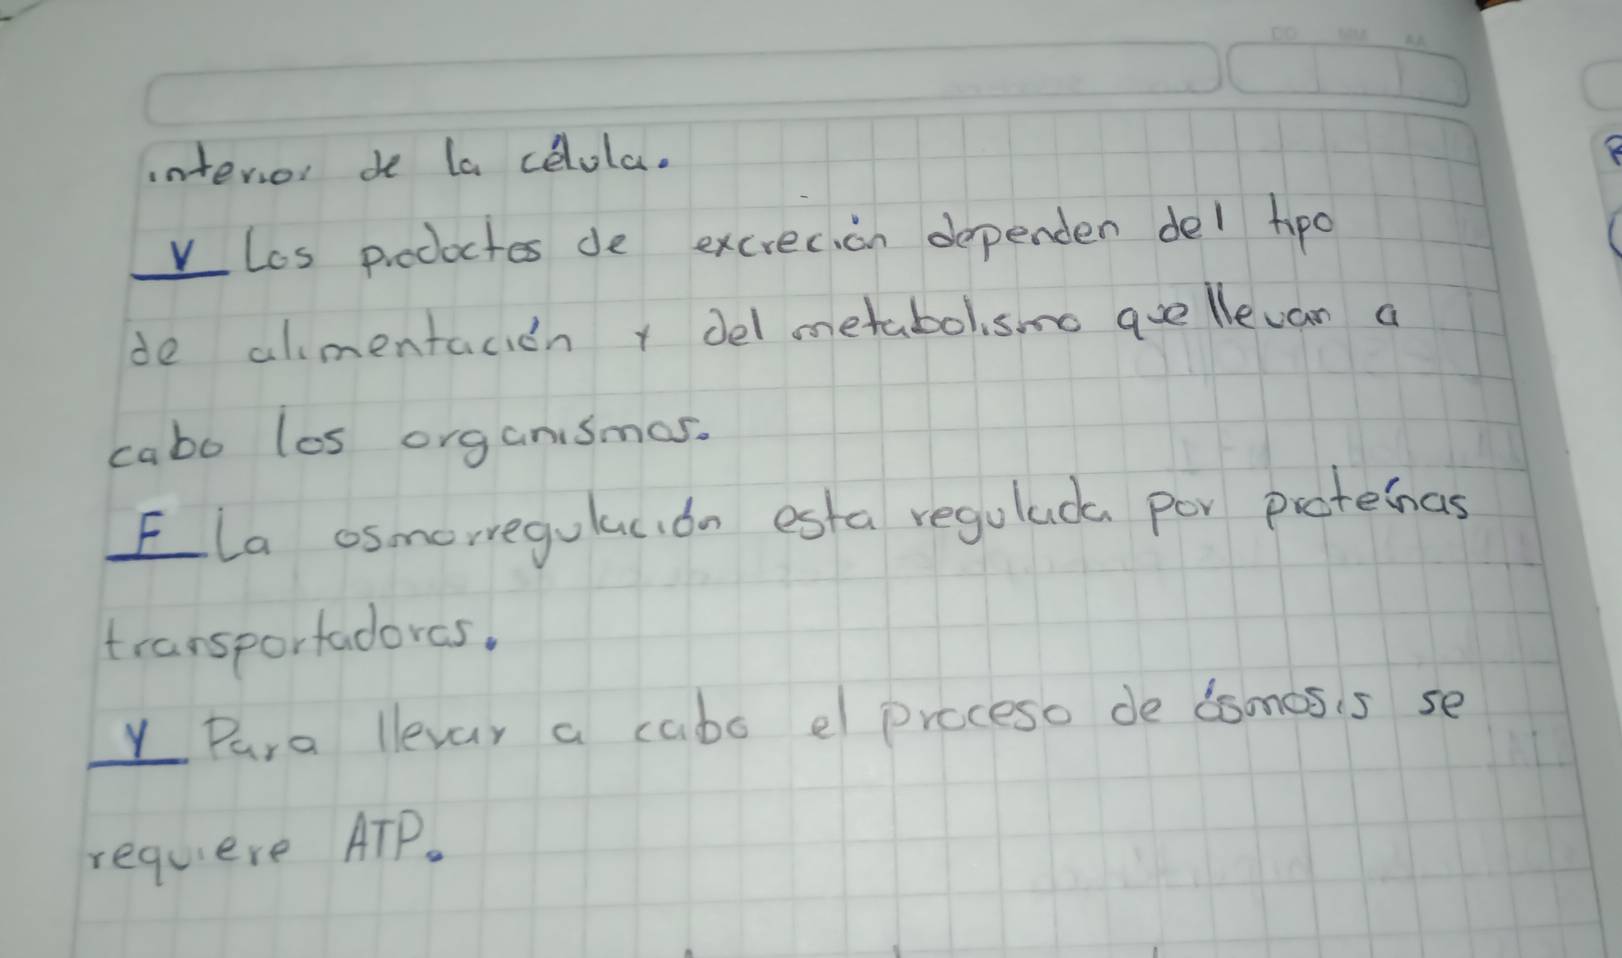 interior de la célula.
V Los productos de excreción dependen del tipo
de alimentación y del metabolismo que llevan a
cabo los organismos.
F La osmorregulación esta regulada por proteínas
transportadoras.
V Para llevar a cabo el proceso de ósmosis se
requiere ATP.